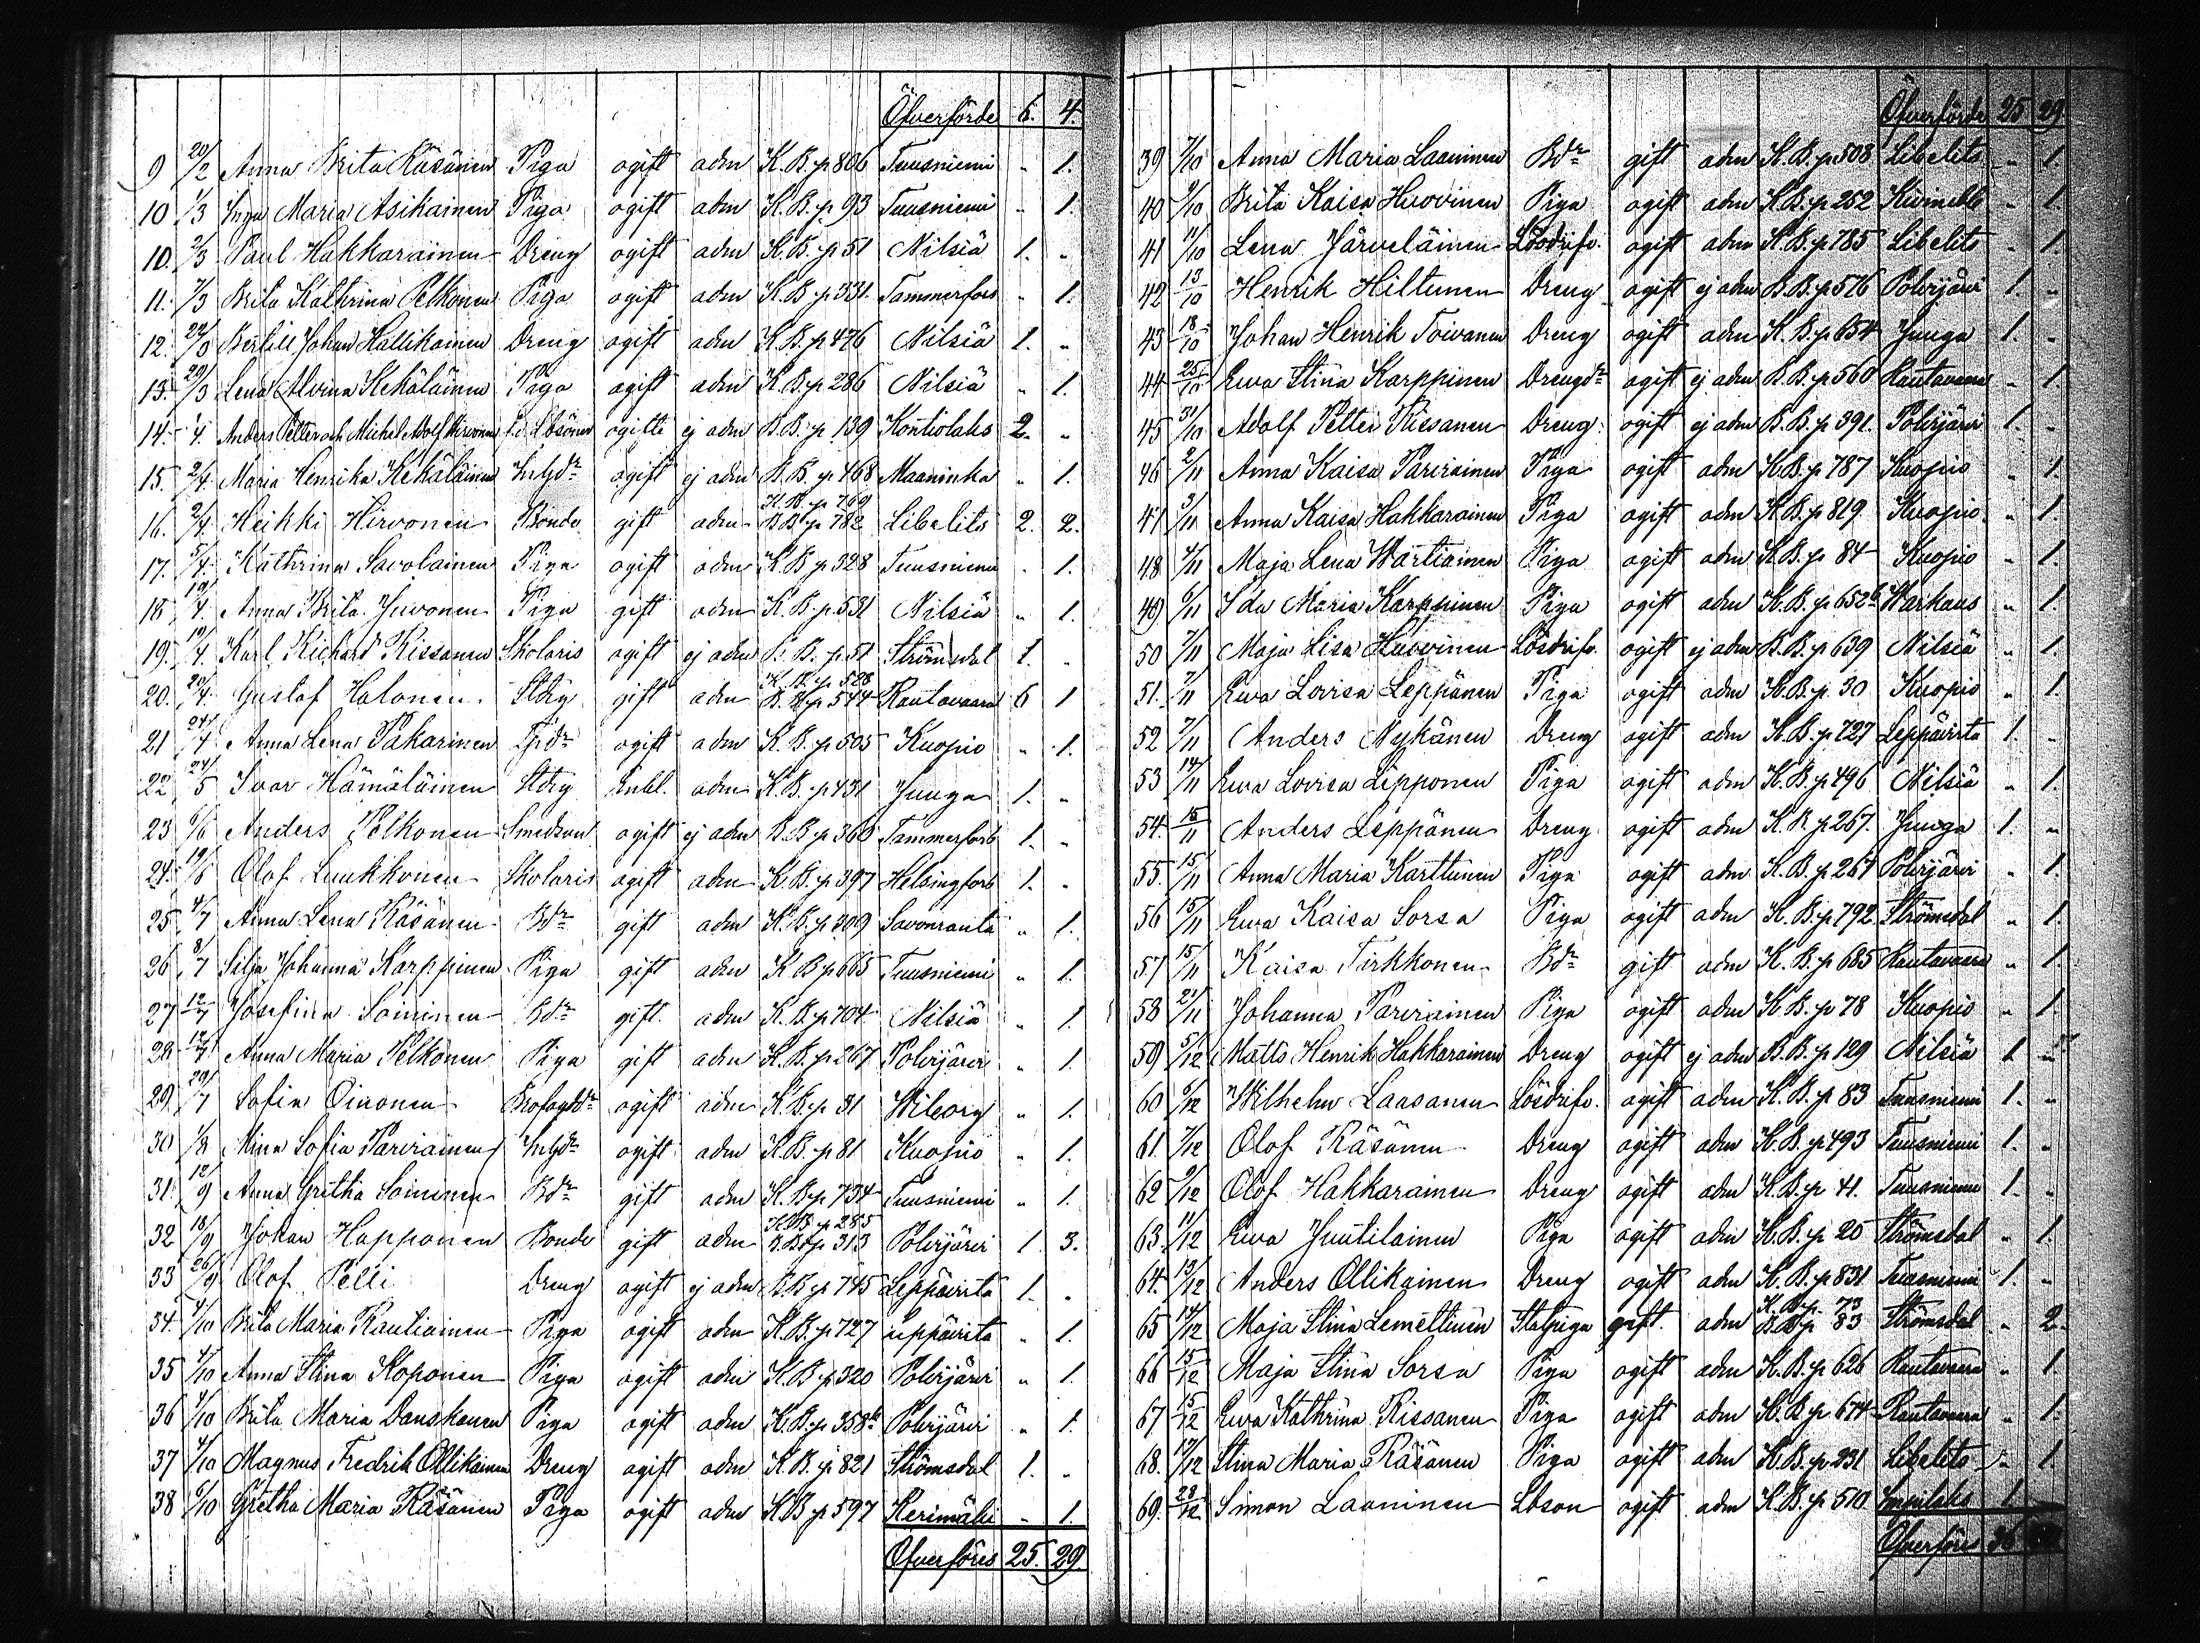 Öfverförde 6. 4.
9 20/2 Anna Brita Räsänen Piga ogift adm K.B. p 806 Tuusniemi " 1.
10 1/3 Inga Maria Asikainen Piga ogift adm K.B. p 93 Tuusniemi " 1.
10. 2/3 Paul Hakkarainen Dreng ogift adm K.B. p 51 Nilsiä 1. "
11. 7/3 Brita Kathrina Pelkonen Piga ogift adm K.B. p 331. Tammerfors " 1.
12. Johan Hallikainen Dreng ogift adm K.B. p 476 Nilsiä 1. "
13. 29/3 Lena Alvina Kekäläinen Piga ogift adm K.B. p 286 Nilsiä " 1.
14. Anders Petter och Michel Adolf Hirvonen Lbsöner ogifte ej adm B.B. p 139 Kontiolaks 2. "
15. 2/4 Maria Henrika Kekäläinen Inhdr ogift ej adm B.B. p 468 Maaninka " 1.
K.B. p 769
16. 2/4 Heikki Hirvonen Bonde gift adm B.B. p 782 Libelits 2. 2.
17. 5/4 Kathrina Savolainen Piga ogift adm K.B. p 328 Tuusniemi " 1.
18 19/4 Anna Brita Juvonen Piga gift adm K.B. p 531 Nilsiä " 1.
19. 19/4 Karl Richard Rissanen Skolaris ogift ej adm B.B. p 51 Strömsdal 1. "
K.B. p 528
20. 20/4 Gustaf Halonen Stdrg gift adm B.B. p 544 Rautavaara 6 1
21 24/4 Anna Lena Pakarinen Tpdr ogift adm K.B. p 505 Kuopio " 1.
22 24/5 Ivar Hämäläinen Stdrg Enkl. adm K.B. p 431 Juuga 1. "
23 6/6 Anders Pelkonen Smedson ogift ej adm B.B. p 360 Tammerfors 1. "
24. 19/6 Olof Luukkonen Skolaris ogift adm K.B. p 397 Helsingfors 1. "
25 4/7 Anna Lena Räsänen Bdr gift adm K.B. p 309 Savonranta " 1.
26 8/7 Silja Johanna Karppinen Piga gift adm K.B. p 665 Tuusniemi " 1.
27 12/7 Josefina Soininen Bdr gift adm K.B. p 704 Nilsiä " 1.
28 12/7 Anna Maria Pelkonen Piga gift adm K.B. p 267 Polvijärvi " 1.
29. 29/7 Sofia Oinonen ogift adm K.B. p 31 Wiborg " 1.
30 1/8 Mina Sofia Parviainen Inhdr ogift adm K.B. p 81 Kuopio " 1.
31. 12/9 Anna Gretha Soininen Bdr gift adm K.B. p 734 Tuusniemi " 1.
K.B. p 285
32 18/9 Johan Happonen Bonde gift adm B.B. p 313 Polvijärvi 1 3.
33 26/9 Olof Pelli Dreng ogift ej adm B.B. p 745 Leppävirta 1. "
34. 4/10 Brita Maria Rautiainen Piga ogift adm K.B. p 727 Leppävirta " 1.
35 4/10 Anna Stina Koponen Piga ogift adm K.B. p 320 Polvijärvi " 1.
36 4/10 Brita Maria Danskanen Piga ogift adm K.B. p 358b Polvijärvi " 1.
37 4/10 Magnus Fredrik Ollikainen Dreng ogift adm K.B. p 821 Strömsdal 1. "
38 6/10 Gretha Maria Räsänen Piga ogift adm K.B. p 597 Kerimäki " 1.
Öfverföres 25. 29.
Öfverförde 25 29.
39 7/10 Anna Maria Laaninen Bdr gift adm K.B. p 508 Libelits " 1.
40 9/10 Brita Kaisa Huovinen Piga ogift adm K.B. p 252 Kivinebb " 1.
41 11/10 Lena Järveläinen Lösdrifv. ogift adm K.B. p 785 Libelits " 1.
42 13/10 Henrik Hiltunen Dreng ogift ej adm B.B. p 576 Polvijärvi 1. "
43 18/10 Johan Henrik Toivanen Dreng ogift adm K.B. p 654 Juuga 1. "
44 25/10 Ewa Stina Karppinen Drengdr ogift ej adm B.B. p 560 Rautavaara " 1.
45 31/10 Adolf Petter Rissanen Dreng ogift ej adm B.B. p 391. Polvijärvi 1. "
46 2/11 Anna Kaisa Parviainen Piga ogift adm K.B. p 787 Kuopio " 1.
47 3/11 Anna Kaisa Hakkarainen Piga ogift adm K.B. p 819 Kuopio " 1.
48 4/11 Maja Lena Wartiainen Piga ogift adm K.B. p 84 Kuopio " 1.
49 6/11 Ida Maria Karppinen Piga ogift adm K.B. p 652b Warkaus " 1.
50 7/11 Maja Lisa Huovinen Lösdrifv. ogift ej adm B.B. p 639 Nilsiä " 1.
51. 7/11 Ewa Lovisa Leppänen Piga ogift adm K.B. p 30 Kuopio " 1.
52 7/11 Anders Nykänen Dreng ogift adm K.B. p 727 Leppävirta 1. "
53 14/11 Ewa Lovisa Lipponen Piga ogift adm K.B. p 496 Nilsiä " 1.
54. 15/11 Anders Leppänen Dreng ogift adm K.B. p 267. Juuga 1. "
55. 15/11 Anna Maria Karttunen Piga ogift adm K.B. p 267 Polvijärvi " 1.
56 15/11 Ewa Kaisa Sorsa Piga ogift adm K.B. p 792 Strömsdal " 1.
57 15/11 Kaisa Tirkkonen Bdr gift adm K.B. p 685 Rautavaara " 1.
58 21/11 Johanna Parviainen Piga ogift adm K.B. p 78 Kuopio " 1.
59 5/12 Matts Henrik Hakkarainen Dreng ogift ej adm B.B. p 129 Nilsiä 1 "
60 6/12 Wilhelm Laasanen Lösdrifv. ogift adm K.B. p 83 Tuusniemi 1. "
61. 7/12 Olof Räsänen Dreng ogift adm K.B. p 493 Tuusniemi 1. "
62 9/12 Olof Hakkarainen Dreng ogift adm K.B. p 41. Tuusniemi 1. "
63. 11/12 Ewa Juutilainen Piga ogift adm K.B. p 20 Strömsdal " 1.
64. 12/12 Anders Ollikainen Dreng ogift adm K.B. p 831 Tuusniemi 1. "
K.B. p. 73
65 14/12 Maja Stina Lemettinen Statpiga gift adm B.B. p 83 Strömsdal " 2.
66 15/12 Maja Stina Sorsa Piga ogift adm K.B. p 626 Rautavaara " 1.
67 15/12 Ewa Kathrina Rissanen Piga ogift adm K.B. p 674 Rautavaara " 1.
68. 17/12 Stina Maria Räsänen Piga ogift adm K.B. p 231 Libelits " 1
69. 28/12 Simon Laaninen Lbson ogift adm K.B. p 510 Impilaks 1
Öfverföres 36